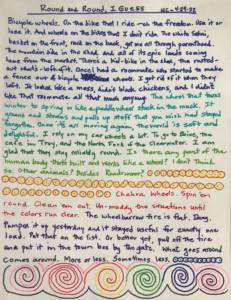 Round and Round, I Guess WC-4-29-22
Bicycle wheels. On the bike that I ride—oh the freedom. Use it or
lose it. And wheels on the bikes that I don't ride. The white Sekai,
basket on the front, rack on the back, got me all through parenthood.
The mountain bike in the shed, and all of its epic loads coming
home from the market. There's a kid-bike in the shed, the rotted-
out seat's left-off. Once I had a roommate who started to make
a fence out of bicycle wheels. I got rid of it when they
left. It looked like a mess, didn't block chickens, and I didn't
like that roommate all that much anyway. The wheel that turns
winter to spring is like a paddle wheel stuck in the muck. It
groans and strains and pulls up stuff that you wish had stayed
forgotten. Once it's all moving again, the world is soft and
delightful. I rely on my car wheels a lot. To go to Boise, the
cafe in Troy, and the North Fork of the Clearwater. I am
glad that they stay reliably round. Is there any part of the
human body that's built and works like a wheel? I don't think
so. Other animals? Besides Roadrunner?
Chakra. Wheels. Spin 'em
round. Clean 'em out. Un-muddy the situations until
the colors run clear. The wheelbarrow tire is flat. Dang.
Pumped it up yesterday and it stayed useful for exactly one
load. Put that on the list. Or better yet, pull off the tire
and put it in the town box by the gate. What goes around
comes around. More or less. Sometimes less.